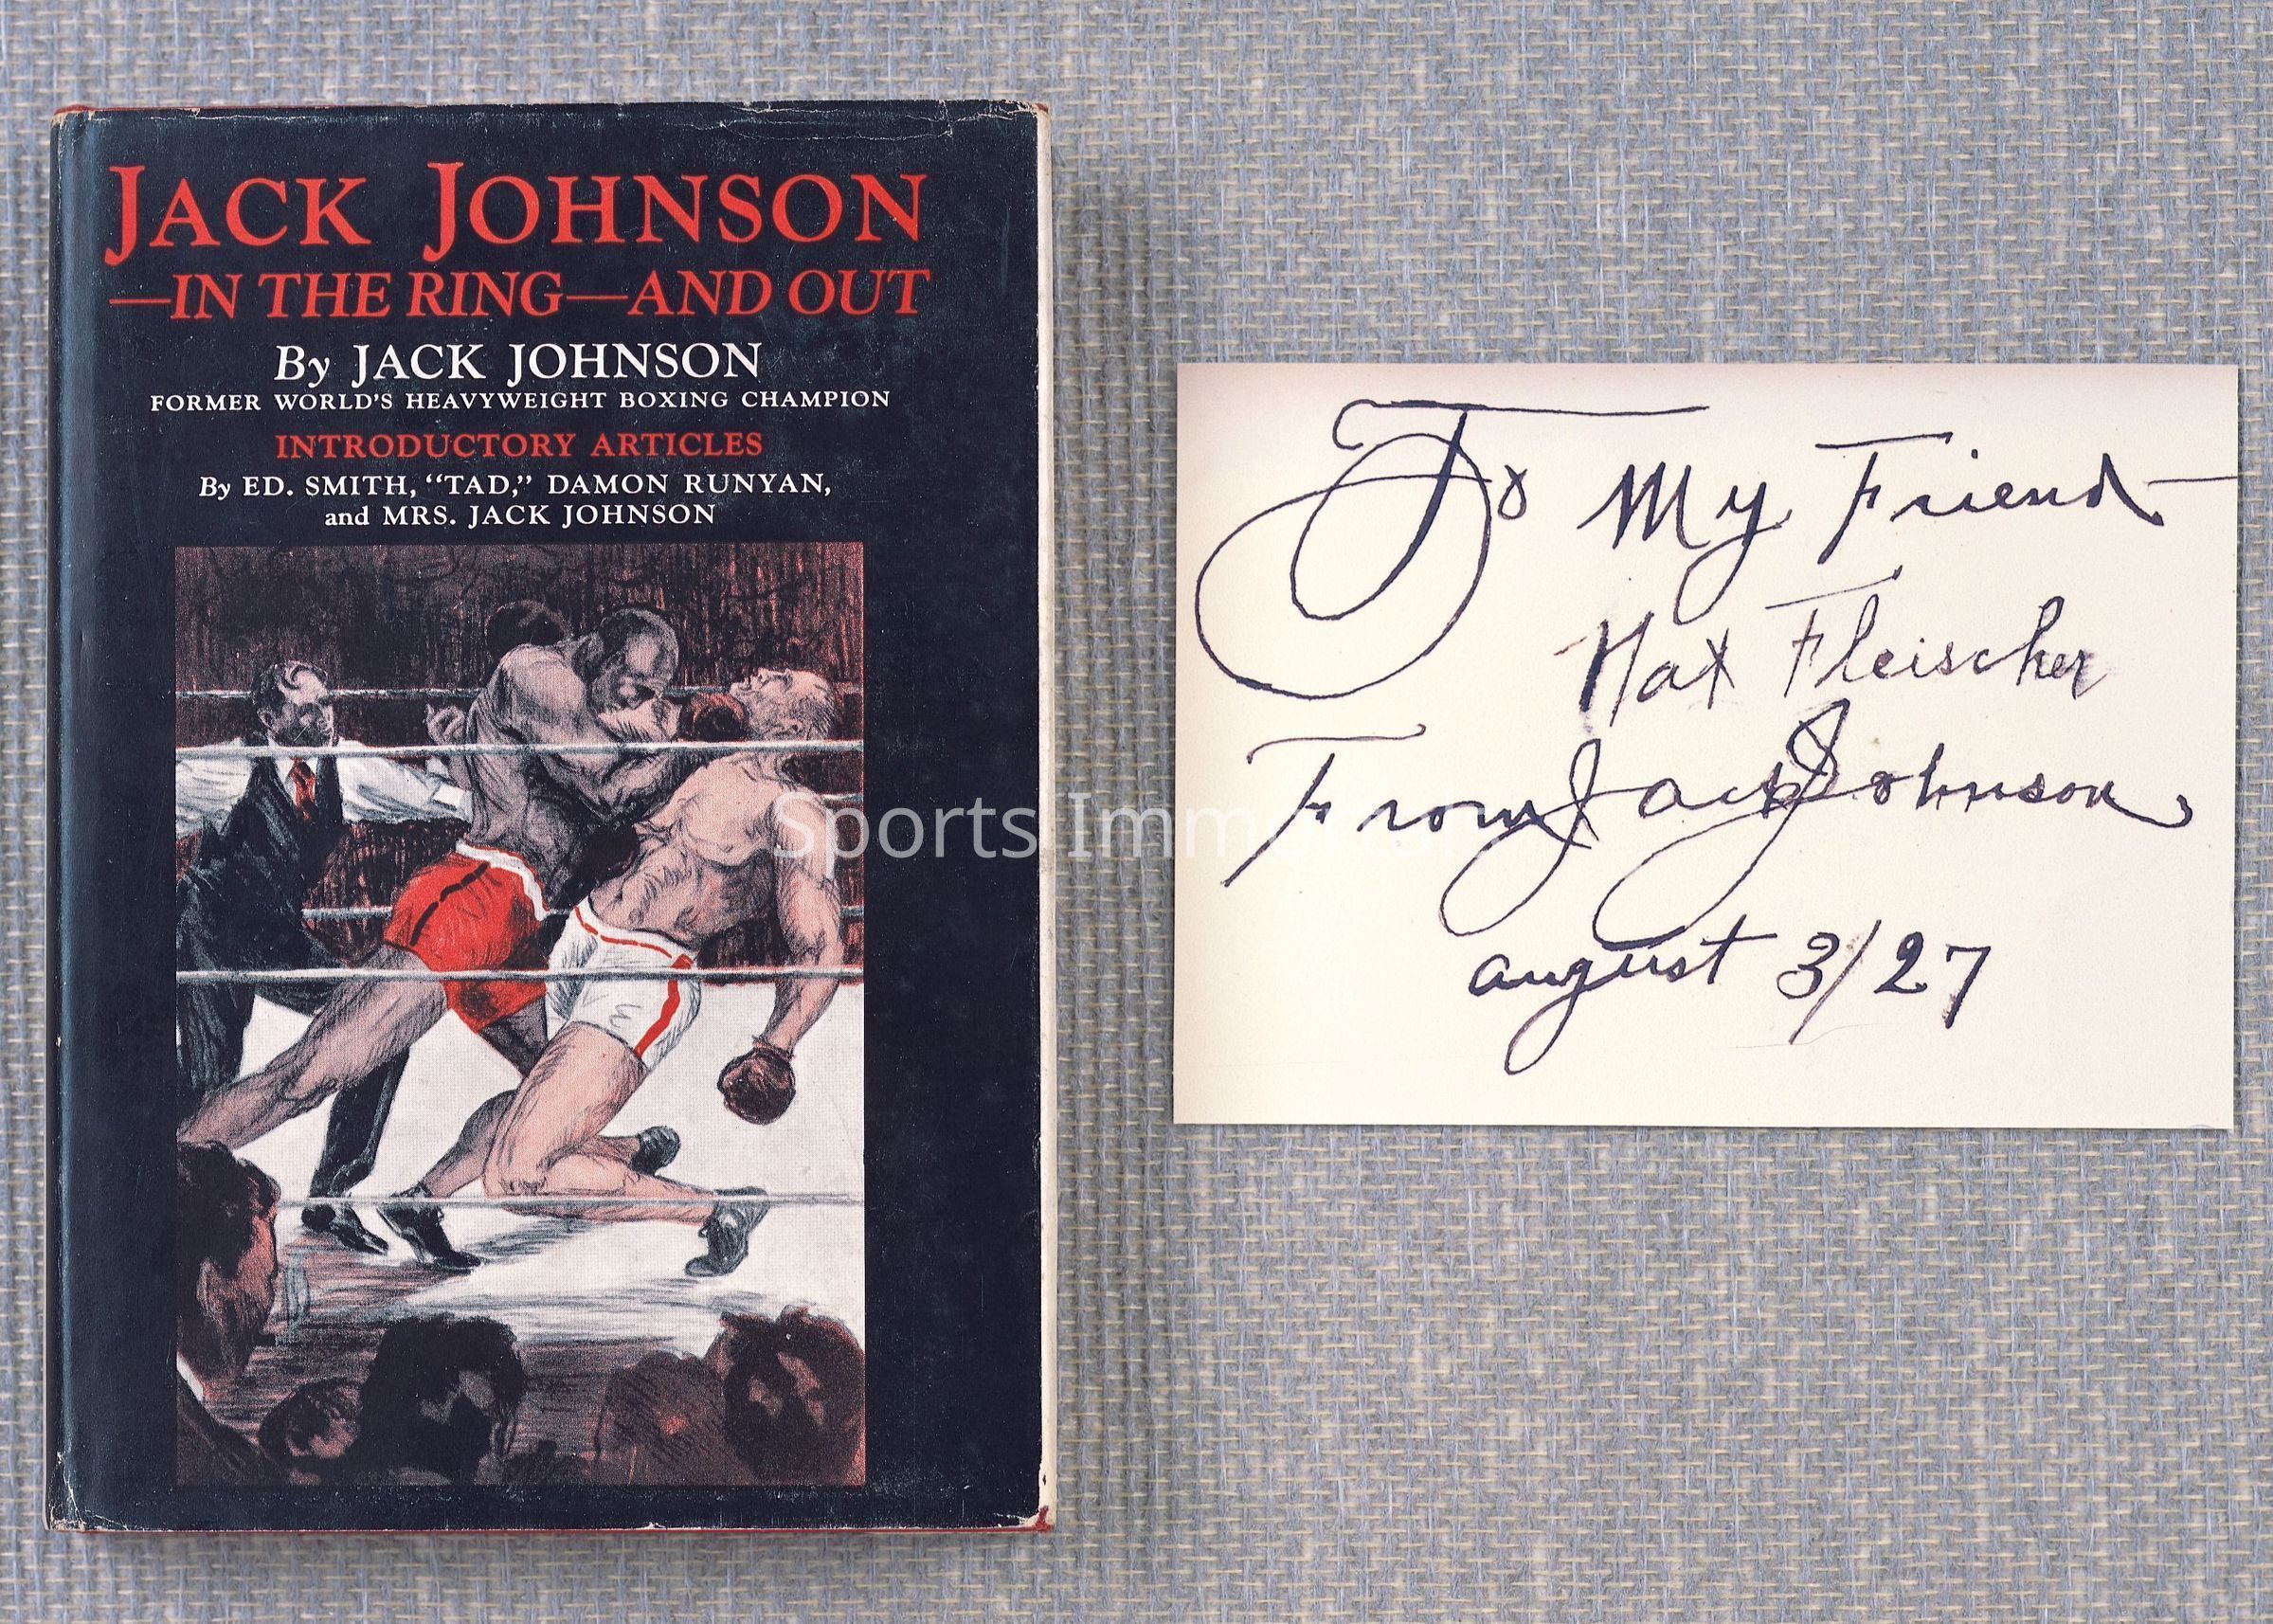 JACK JOHNSON
—IN THE RING—AND OUT
By JACK JOHNSON
FORMER WORLD'S HEAVYWEIGHT BOXING CHAMPION
INTRODUCTORY ARTICLES
By ED. SMITH, "TAD," DAMON RUNYAN,
and MRS. JACK JOHNSON
To My Friend
Nat Fleischer
From Jack Johnson
august 3/27
Sports Immortals